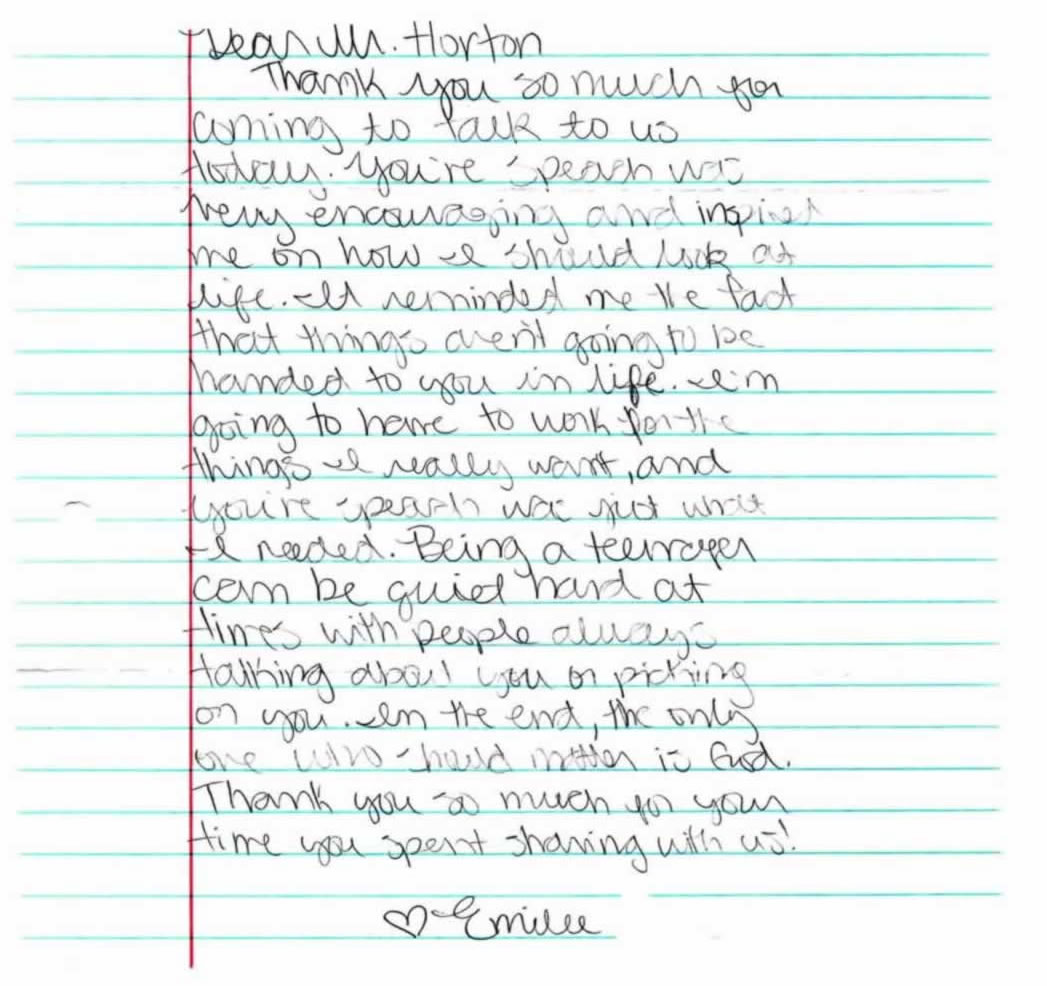 Dear Mr. Horton
Thank you so much for
coming to talk to us
today. You're speach was
very encouraging and inspired
me on how I should look at
life. It reminded me the fact
that things aren't going to be
handed to you in life. I'm
going to have to work for the
things I really want, and
you're speach was just what
I needed. Being a teenager
can be quiet hard at
times with people always
talking about you or picking
on you. In the end, the only
one who should matter is God.
Thank you so much for your
time you spent sharing with us!
♡ Emilee